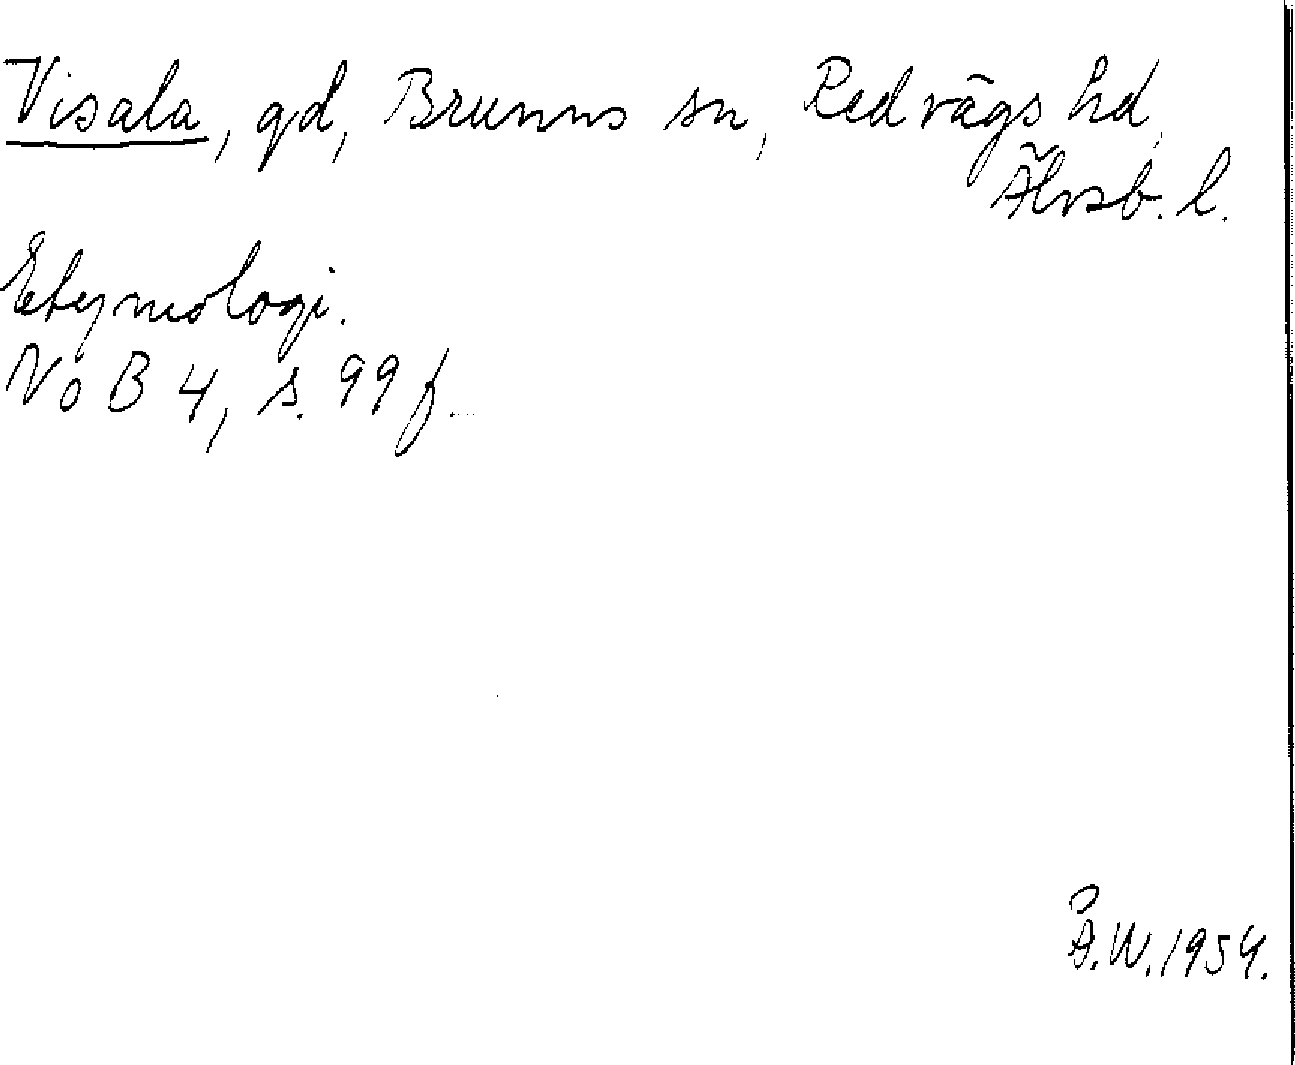 Visala, gd, Brunns sn, Redvägs hd,
Älvsb. l.
Etymologi.
NoB 4, s. 99 f.
Å.W. 1954.